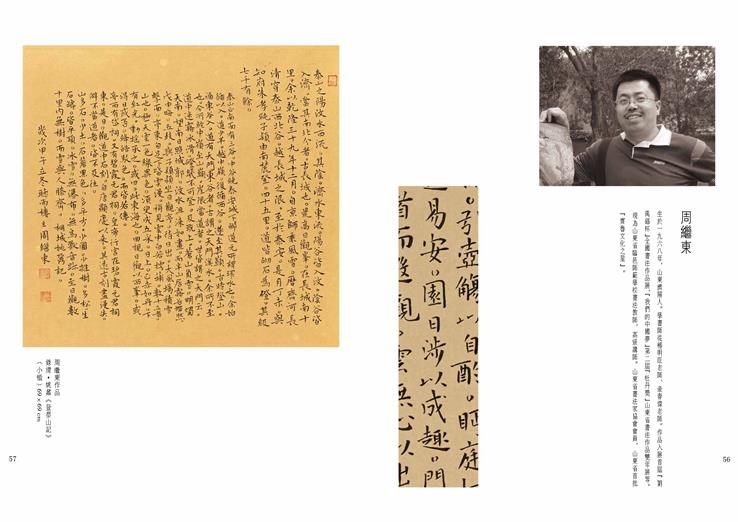 周繼東
生於一九六八年，山東濟陽人。學書師從楊明臣老師、老師。作品入展首屆「第
萬錫杯」全國書法作品展、「我們的中國夢」第二屆「牡丹獎」山東省書法作品雙年展等。
現為山東省臨邑師範學校書法教師、高級講師。山東省書法家協會會員，山東省首批
「齊魯文化之星」。
引壺觴以自酌。眄庭
易安。園日涉以成趣。門
首而遐觀。雲無心以出
56
泰山之陽汶水西流。其陰濟水東流。陽谷皆入汶。陰谷皆
入濟。當其南北分者。古長城也。最高日觀峯。在長城南十
里。余以乾隆三十九年十二月。自京師乘風雪。歷齊河長
清。穿泰山西北谷。越長城之限。至於泰安。是月丁未。與
知府朱孝純子潁由南麓登。四十五里。道皆砌石為磴。其級
七千有餘。
泰山正南面有三谷。中谷繞泰安城下。酈道元所謂環水也。余始
循以入。道少半。越中嶺。復循西谷。遂至其巔。古時登山。
循東谷入。道有天門。東谷者。古謂之天門溪水。余所不至
也。今所經中嶺及山巔崖限當道者。世皆謂之天門云。
道中迷霧冰滑。磴幾不可登。及既上。蒼山負雪。明燭
天南。望晚日照城郭。汶水徂徠如畫。而半山居霧若帶然。
戊申晦。五鼓。與子潁坐日觀亭待日出。大風揚積雪
擊面。亭東自足下皆雲漫。稍見雲中白若樗蒱數十立者。
山也。極天雲一線異色。須臾成五采。日上。正赤如丹。下
有紅光。動搖承之。或曰。此東海也。回視日觀以西峯。或
得日或否。絳皓駁色。而皆若僂。
亭西有岱祠。又有碧霞元君祠。皇帝行宮在碧霞元君祠
東。是日。觀道中石刻。自唐顯慶以來。其遠古刻盡漫失。
僻不當道者。皆不及往。
山多石。少土。石蒼黑色。多平方。少圜。少雜樹。多松。生
石罅。皆平頂。冰雪。無瀑水。無鳥獸音跡。至日觀數
十里內無樹。而雪與人膝齊。桐城姚鼐記。
歲次甲午立冬聽雨樓主周繼東
周繼東作品
錄清・姚鼐《登泰山記》
（小楷）69×69 cm
57